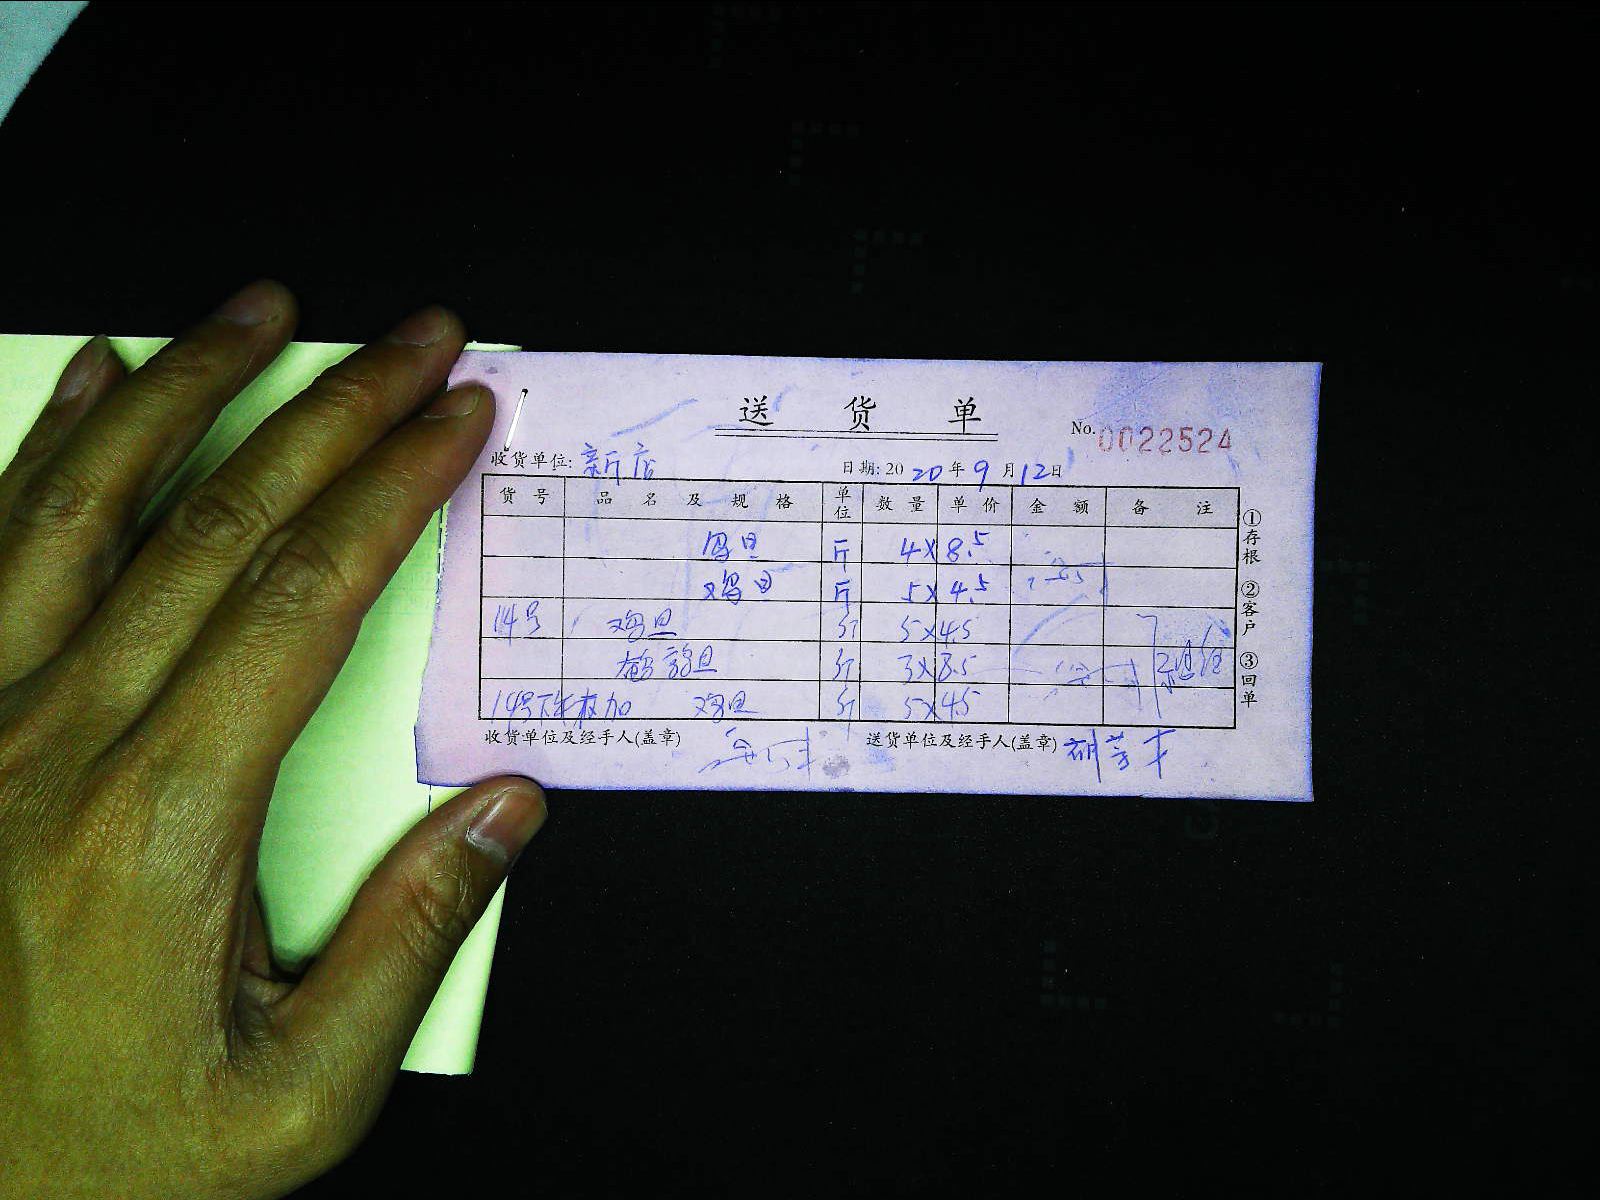 送 货 单
No. 0022524
收货单位: 新店 日期: 20 20 年 9 月 12 日
货 号 品 名 及 规 格 单位 数 量 单 价 金 额 备 注
旦 斤 4×8.5
鸡旦 斤 5×4.5
14号 鸡旦 斤 5×4.5
鹌鹑旦 斤 3×8.5
14号下午 加 鸡旦 斤 5×4.5
收货单位及经手人(盖章) 送货单位及经手人(盖章) 胡
①存根 ②客户 ③回单